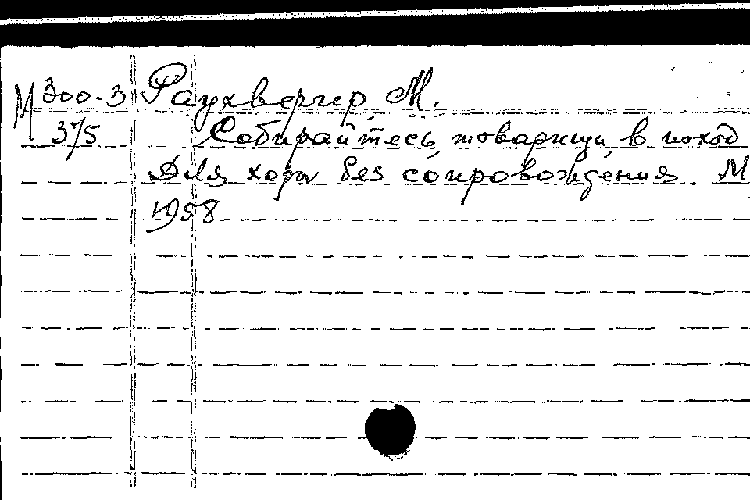 М 300-3 Раухвергер, М.
375 Собирайтесь, товарищи, в поход
Для хора без сопровождения. М
1958